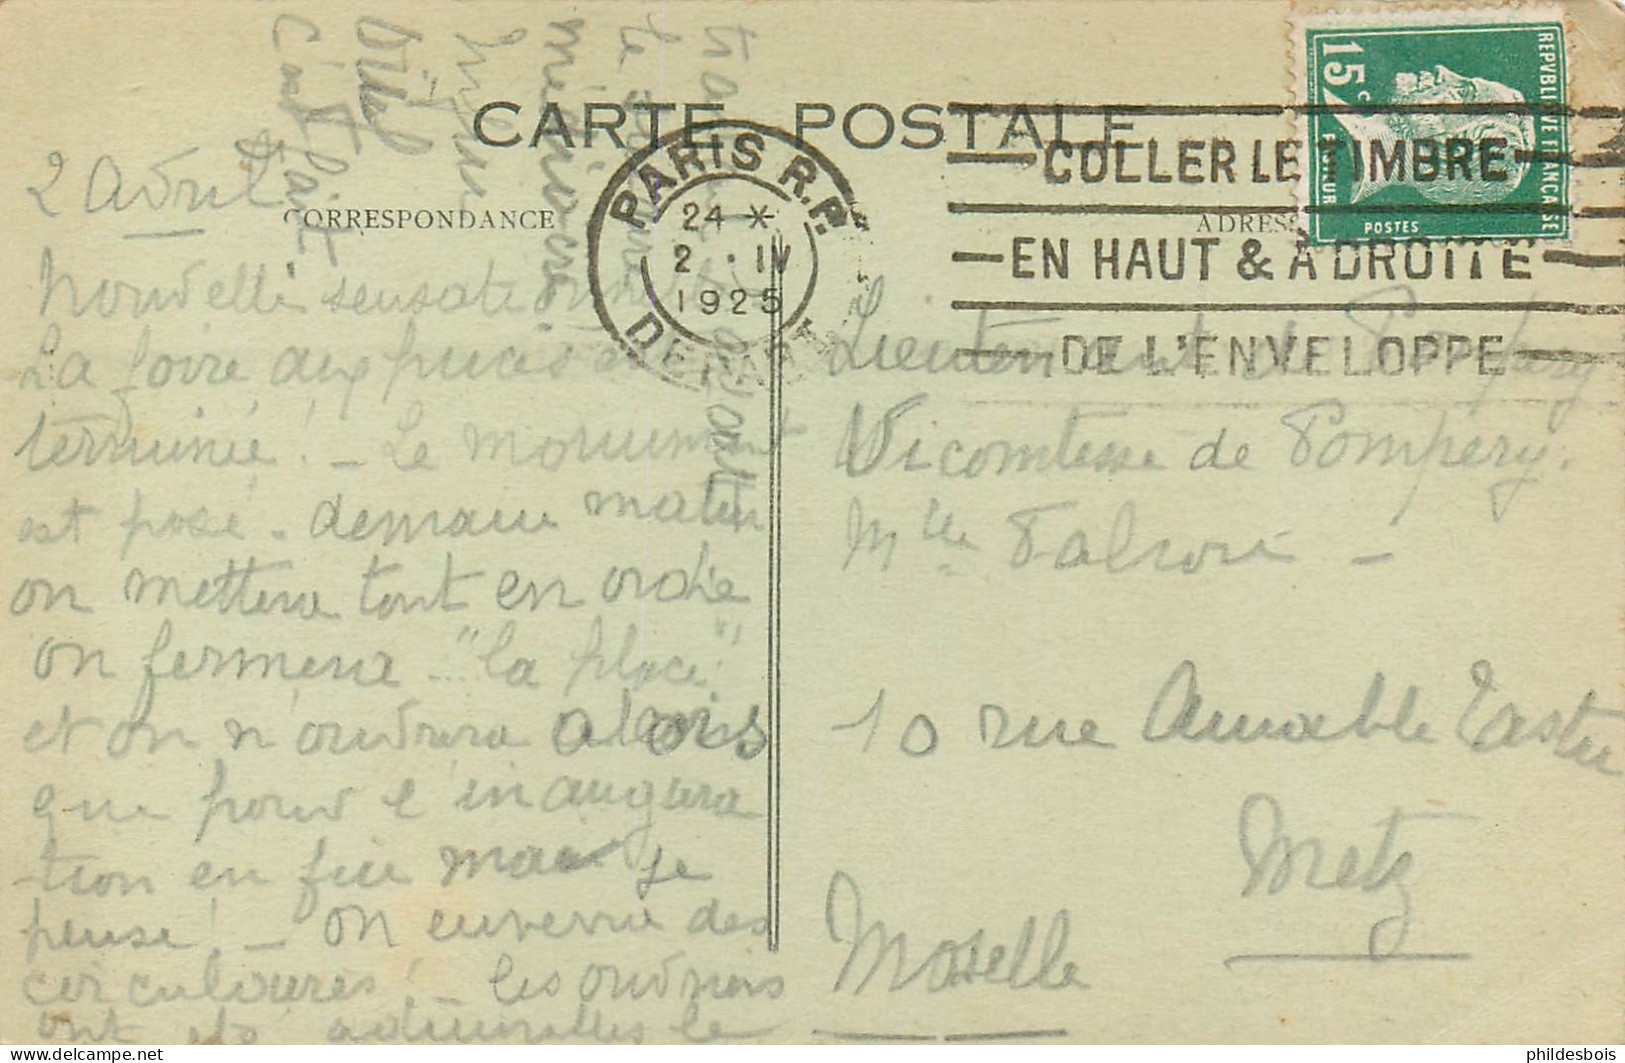 CARTE POSTALE
CORRESPONDANCE
ADRESSE
PARIS R.P.
24 *
2 · IV
1925
DEPART
COLLER LE TIMBRE
EN HAUT & À DROITE
DE L'ENVELOPPE
REPVBLIQVE FRANCAISE
15 c
POSTES
2 Avril
Nouvelle sensationnelle
La foire aux puces est
terminée! - Le monument
est posé - demain matin
on mettera tout en ordre
on fermera "la place"!
et on n'ouvrira alors
que pour l'inaugura
tion en fin mai je
pense! - On enverra des
circulaires! - les ouvriers
ont été admirables le
travail
le
c'était
Lieutenant de Pompery
Vicomtesse de Pompery.
Mlle
10 rue Amable Tastu
Metz
Moselle
phildesbois
delcampe.net